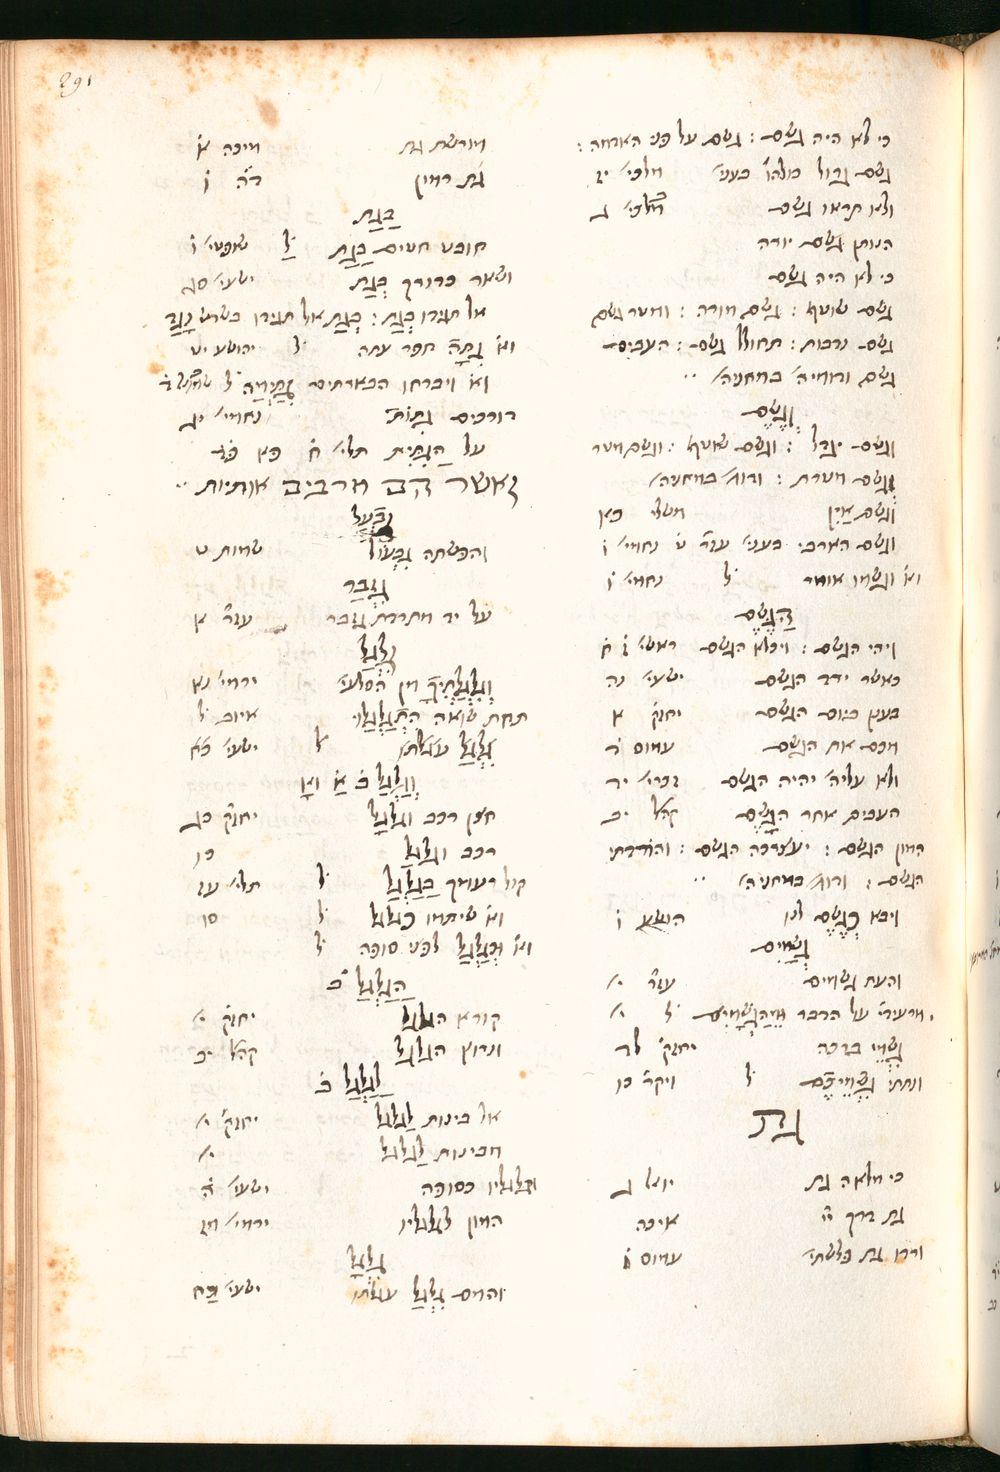 291
כי לא היה גשם : גשם על פני הארמה :
גשם גדול כולהו בעני׳ מלכי׳ יג
ולא תראו גשם מלכי׳ ג
הנותן גשם יורה
כי לא היה גשם
גשם שוטף : גשם מורה : ומטר גשם
גשם נדבות : תחולל גשם : העבים
גשם ורומיה׳ במחניה׳
וְגֶשֶׁם
וגשם יגדל : וגשם שוטף : וגשם מטר
וגשם מטרת : ורומ׳ במחניה׳
וְגשם אַיִן משלי כא
וגשם הארבי׳ בעני׳ עזר֗ ט֗ נחמי׳ ו֗
וא֗ וגשמו אומר ל֗ נחמי׳ ו֗
הַגֶּשֶׁם
ויהי הגשם : ויכלא הגשם ראשי׳ ז֗ ח֗
כאשר ירד הגשם ישעי׳ נה
בענן ביום הגשם יחזק֗ א
מכם את הגשם עמוס ד֗
ולא עליה׳ יהיה הגשם זכרי׳ יד
העבים אחר הַגָּשֶׁם קהל֗ יב
המון הגשם : יעצרכה הגשם : והורדתי
הגשם : ורומ׳ במחניה׳
ויבא כַגֶּשֶׁם לנו הושע ו֗
גְּשָׁמִים
והעת גשמים עזר֗ י׳
מרעידי׳ על הדבר וּמֵהַגְּשָׁמִים ל֗ י׳
גִּשְׁמֵי ברכה יחזק֗ לד
ונתתי גִּשְׁמֵיכֶם ל֗ ויקר֗ כו
גַת
כי מלאה גת יואל ג
גת דרך יי֗ איכה
ורדו גת פלשתי׳ עמוס ו֗
מורשת גת מיכה א֗
גת רמון ד֗ה֗ ו֗
בַּגַת
חובט חטים בַּגַת ל֗ שופטי׳ ו֗
ושאר כדורך בְּגַת ישעי׳ סג
אל תגידו בְגַת : בְּגַת אל תגידו בשרש נָגַד
וא֗ גִתָּה חפר עתה ל֗ יהושע יט
וא֗ ויברחו הבארתים גִּתָּיְמָה ל֗ שמואל ד֗
דורכים גִתּוֹת נחמי׳ יג
על הַגִתִּית תלי׳ ח֗ פא פד֗
ואשר הם מרבים אותיות
גִּבְעֹל
והפשתה גִּבְעוֹל שמות ט
גִּזְבַר
על יד מתרדת גזבר עזר֗ א
גִּלְגַל
וְגִלְגַּלְתִּיךָ מן הסלעי׳ ירמי׳ נא
תחת שואה הִתְגַּלְגָּלוּ איוב ל֗
גִּלְגַּל עגלתו ל֗ ישעי׳ כ֗א
וְגַלְגַּל ב֗ א֗ וא֗
חצן רכב וגלגל יחזק֗ כג
רכב וגלגל כו
קול רעמך בַּגַלְגַּל ל֗ תלי׳ עז
וא֗ שיתמו כַּגַלְגַל ל֗ סו
וא֗ וּכְגַלְגַּל לפני סופה ל֗
הַגַּלְגַּל ב֗
קורא הגלגל יחזק֗ י׳
ונרוץ הגלגל קהל֗ יב
לַגַּלְגַּל ב֗
אל בינות לַגלגל יחזק֗ י׳
מבינות לַגלגל י׳
וגלגליו כסופה ישעי׳ ה֗
המון לגלגליו ירמי׳ מז
גִּלְגָּל
והמם גִּלְגַּל עגלתו ישעי׳ כח